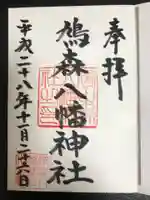 奉拝
鳩森八幡神社
平成二十八年十一月二十六日